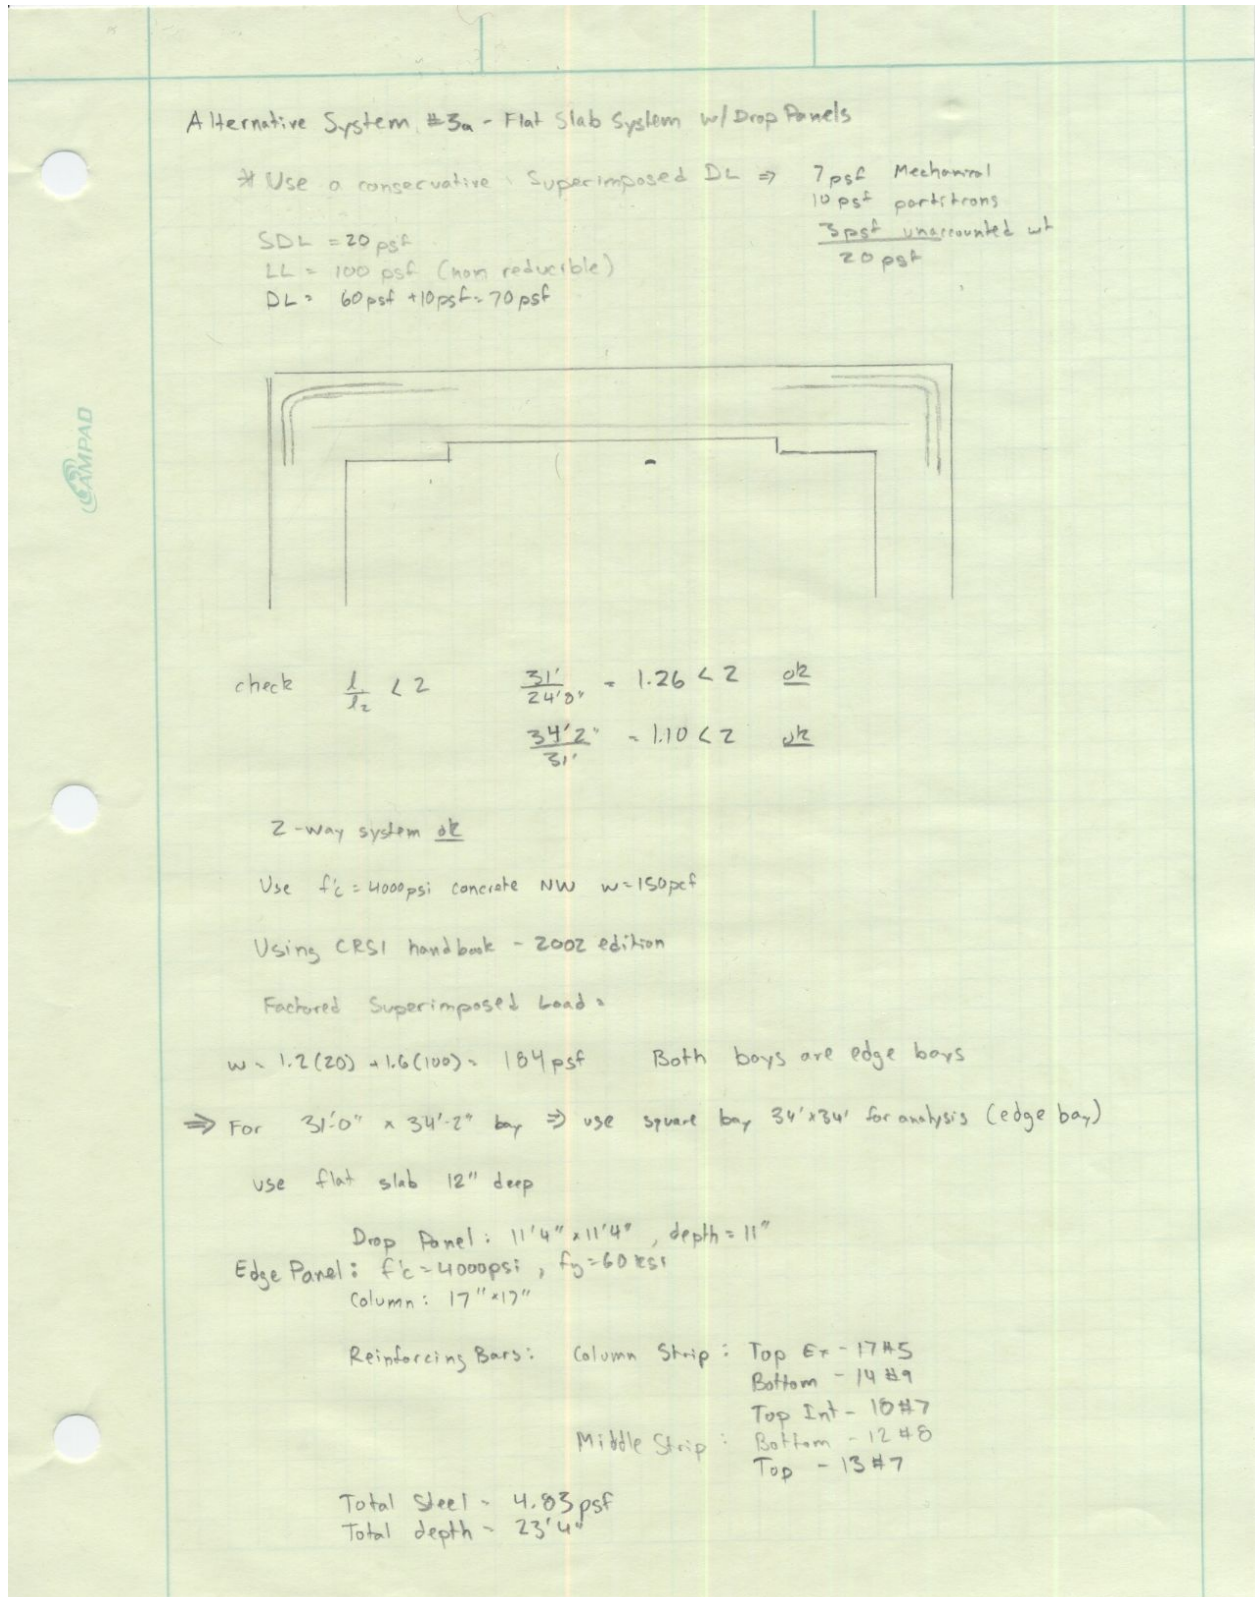 Alternative System #3a - Flat Slab System w/ Drop Panels
* Use a conservative Superimposed DL ⇒ 7 psf Mechanical
10 psf partitions
3 psf unaccounted wt
20 psf
SDL = 20 psf
LL = 100 psf (non reducible)
DL = 60 psf + 10 psf = 70 psf
CAMPAD
check l/l2 < 2 31'/24'8" = 1.26 < 2 ok
34'2"/31' = 1.10 < 2 ok
2-way system ok
Use f'c = 4000 psi concrete NW w=150pcf
Using CRSI handbook - 2002 edition
Factored Superimposed Load =
w = 1.2(20) + 1.6(100) = 184 psf Both bays are edge bays
⇒ For 31'-0" x 34'-2" bay ⇒ use square bay 34'x34' for analysis (edge bay)
use flat slab 12" deep
Drop Panel: 11'4" x 11'4", depth = 11"
Edge Panel: f'c = 4000psi, fy = 60 ksi
Column: 17"x17"
Reinforcing Bars: Column Strip: Top Ex - 17#5
Bottom - 14 #9
Top Int - 18#7
Middle Strip: Bottom - 12 #8
Top - 13 #7
Total Steel = 4.83 psf
Total depth = 23'4"